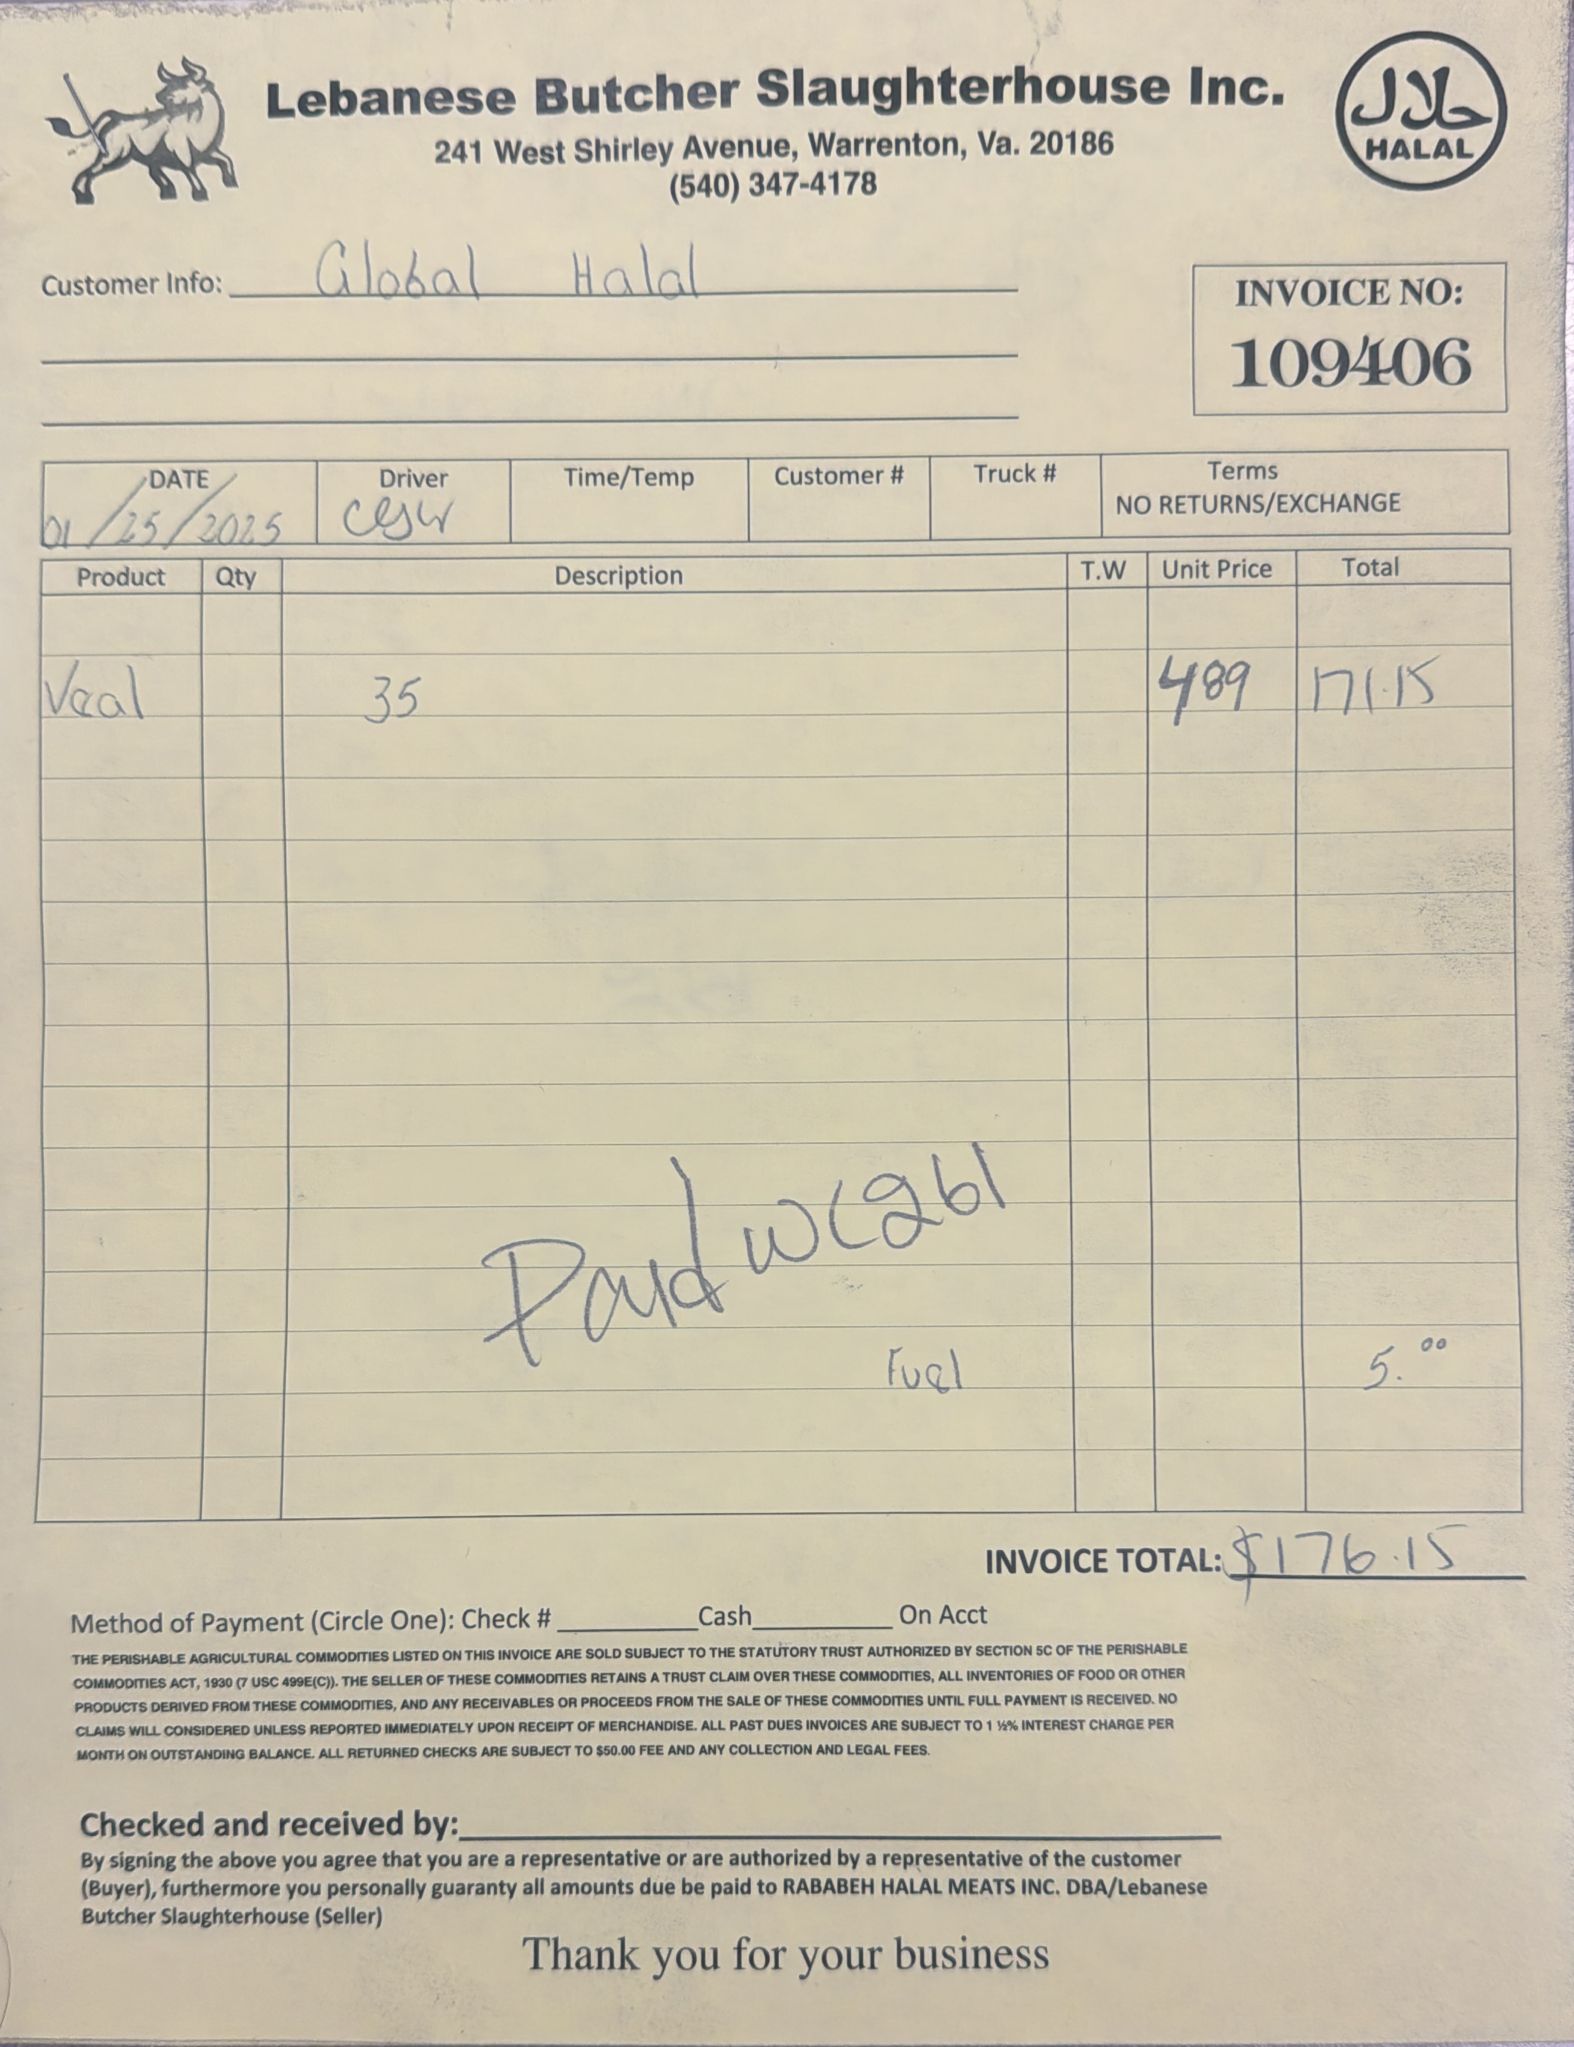 Lebanese Butcher Slaughterhouse Inc.
241 West Shirley Avenue, Warrenton, Va. 20186
(540) 347-4178
حلال
HALAL
Customer Info: Global Halal
INVOICE NO:
109406
DATE Driver Time/Temp Customer # Truck # Terms
NO RETURNS/EXCHANGE
01/25/2025
Product Qty Description T.W Unit Price Total
Veal 35 489 171.15
Paid
Fuel 5.00
INVOICE TOTAL: $176.15
Method of Payment (Circle One): Check # Cash On Acct
THE PERISHABLE AGRICULTURAL COMMODITIES LISTED ON THIS INVOICE ARE SOLD SUBJECT TO THE STATUTORY TRUST AUTHORIZED BY SECTION 5C OF THE PERISHABLE
COMMODITIES ACT, 1930 (7 USC 499E(C)). THE SELLER OF THESE COMMODITIES RETAINS A TRUST CLAIM OVER THESE COMMODITIES, ALL INVENTORIES OF FOOD OR OTHER
PRODUCTS DERIVED FROM THESE COMMODITIES, AND ANY RECEIVABLES OR PROCEEDS FROM THE SALE OF THESE COMMODITIES UNTIL FULL PAYMENT IS RECEIVED. NO
CLAIMS WILL CONSIDERED UNLESS REPORTED IMMEDIATELY UPON RECEIPT OF MERCHANDISE. ALL PAST DUES INVOICES ARE SUBJECT TO 1 ½% INTEREST CHARGE PER
MONTH ON OUTSTANDING BALANCE. ALL RETURNED CHECKS ARE SUBJECT TO $50.00 FEE AND ANY COLLECTION AND LEGAL FEES.
Checked and received by:
By signing the above you agree that you are a representative or are authorized by a representative of the customer
(Buyer), furthermore you personally guaranty all amounts due be paid to RABABEH HALAL MEATS INC. DBA/Lebanese
Butcher Slaughterhouse (Seller)
Thank you for your business